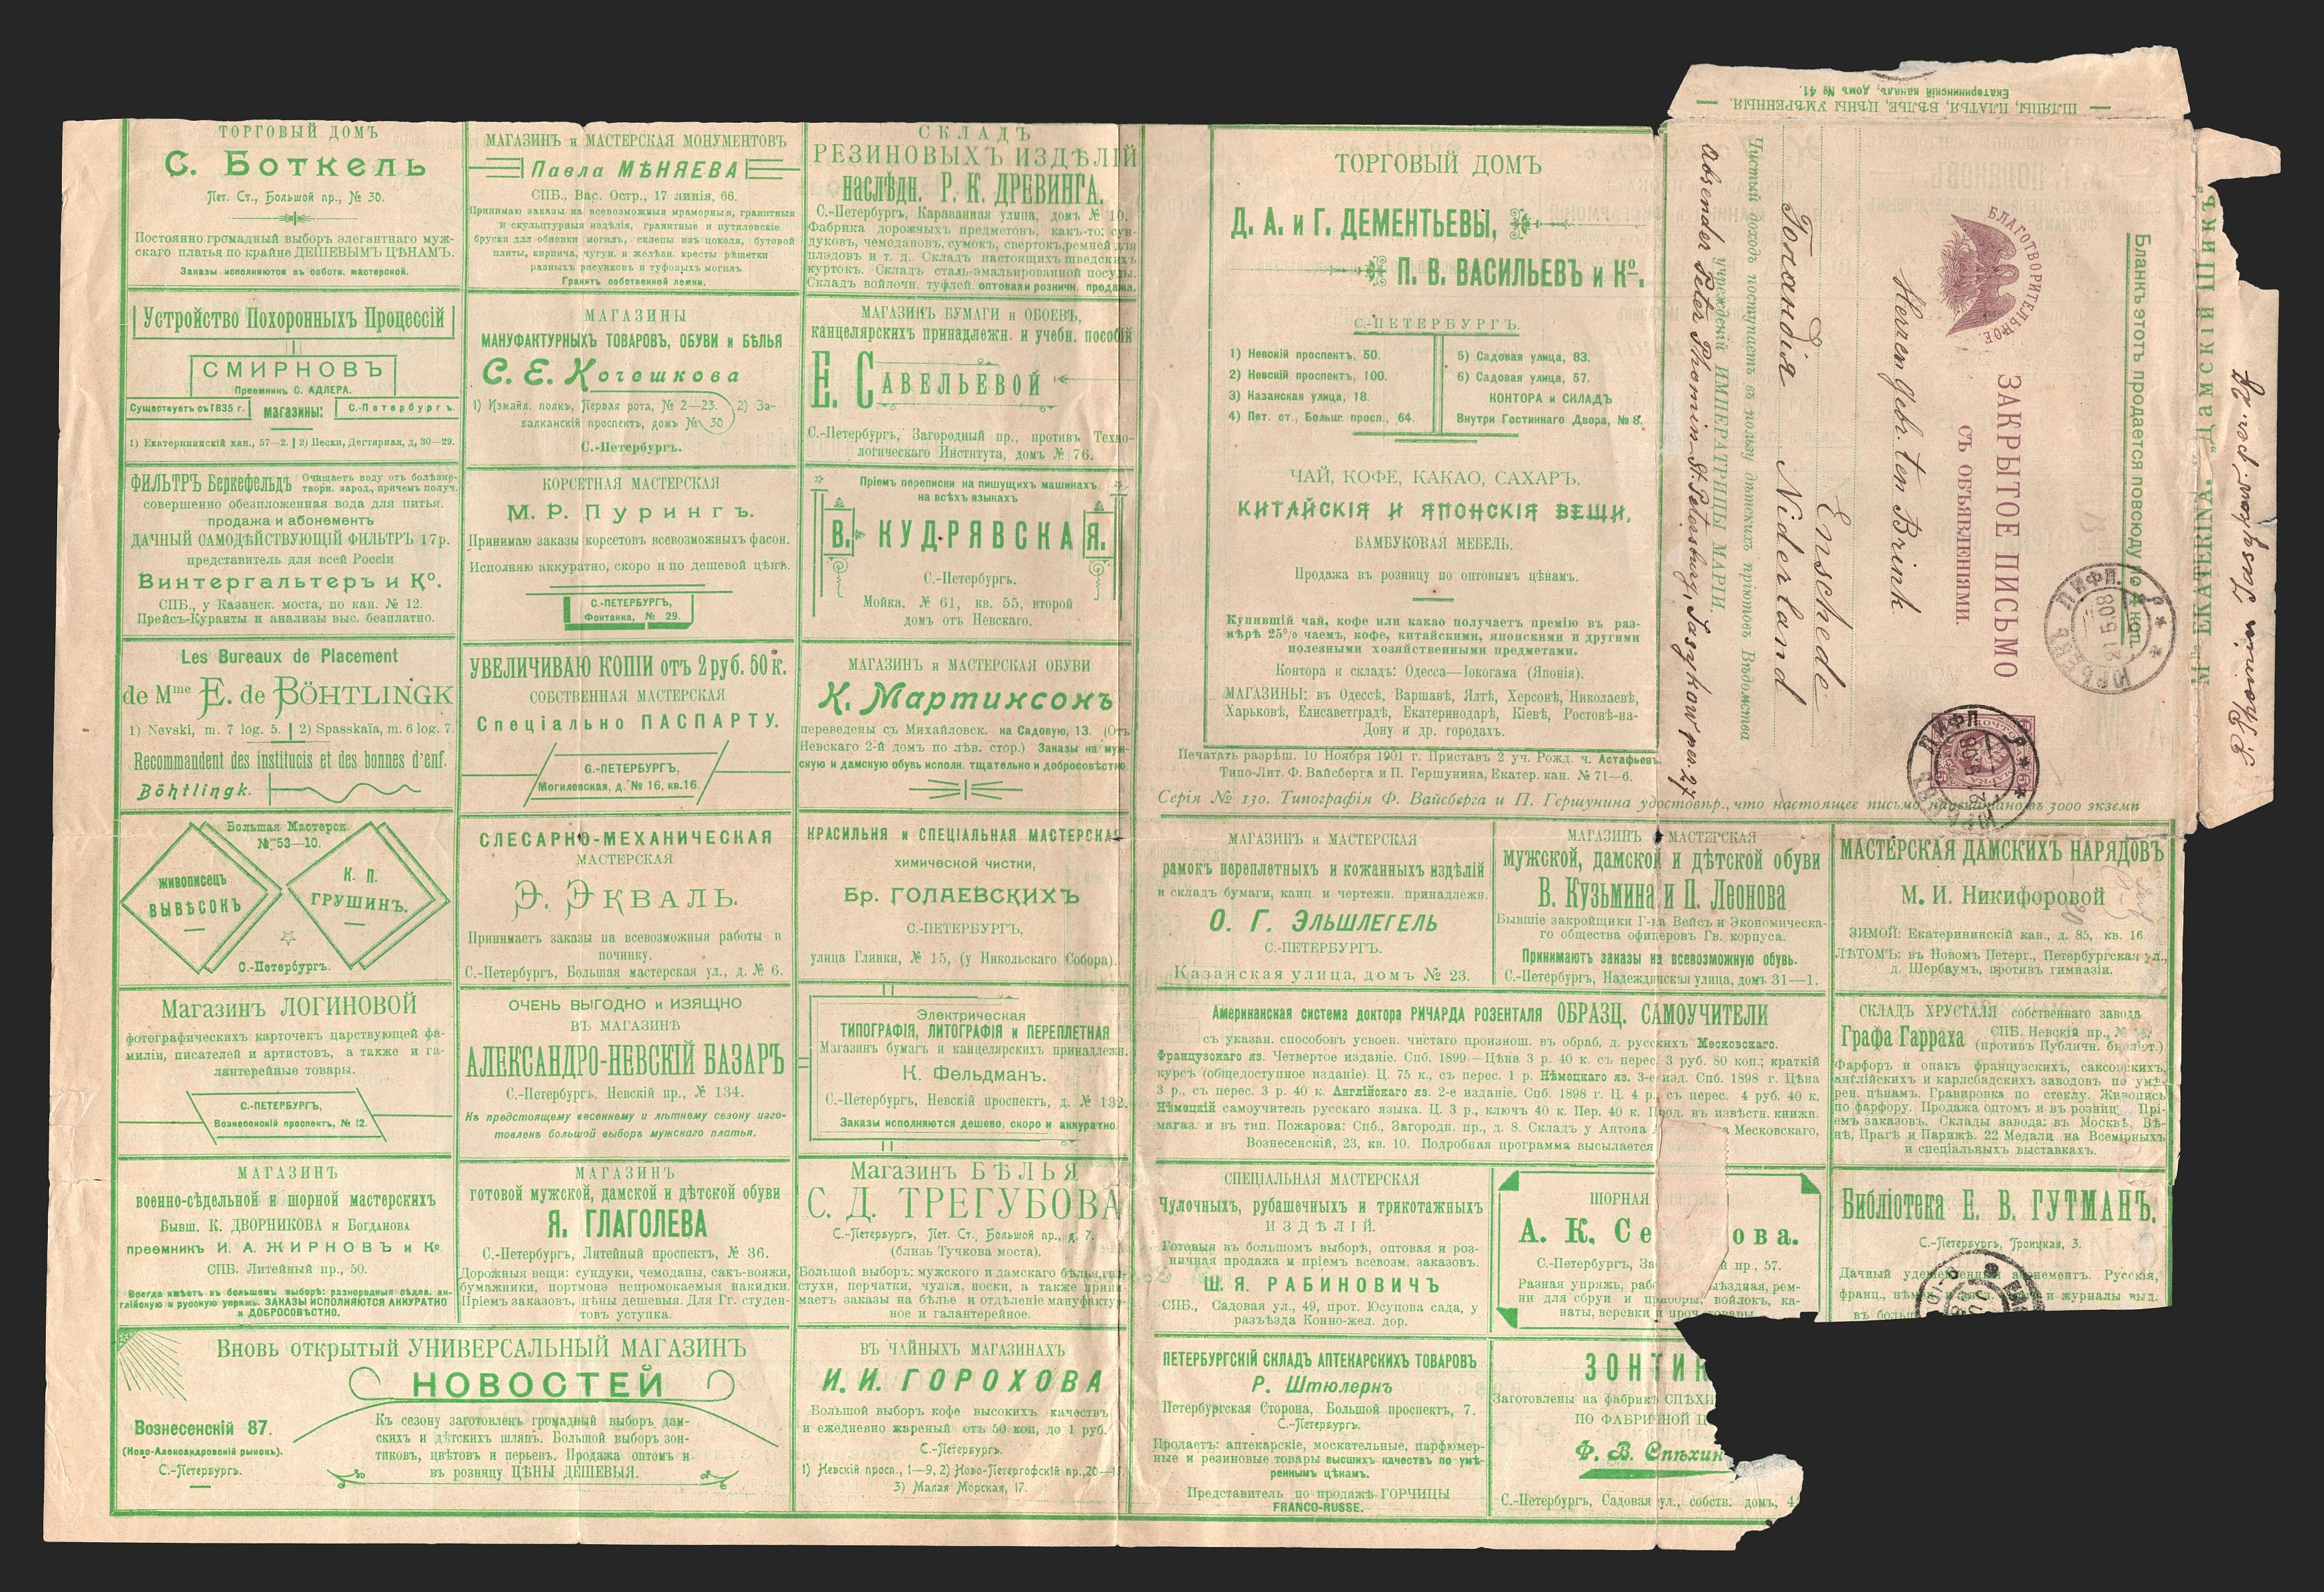 ТОРГОВЫЙ ДОМЪ
С. Боткель
Пет. Ст., Большой пр., № 30.
Постоянно громадный выборъ элегантнаго муж-
скаго платья по крайне ДЕШЕВЫМЪ ЦѢНАМЪ.
Заказы исполняются въ собств. мастерской.
Устройство Похоронныхъ Процессій
СМИРНОВЪ
Преемникъ С. АДЛЕРА.
Существуетъ съ 1835 г. магазины: С.-Петербургъ.
1) Екатерининскій кан., 57—2. | 2) Пески, Дегтярная, д, 30—29.
ФИЛЬТРЪ Беркефельдъ Очищаетъ воду отъ болѣзне-
творн. зарод., причемъ получ.
совершенно обезпложенная вода для питья.
продажа и абонементъ
ДАЧНЫЙ САМОДѢЙСТВУЮЩІЙ ФИЛЬТРЪ 17р.
представитель для всей Россіи
Винтергальтеръ и Ко.
СПБ., у Казанск. моста, по кан. № 12.
Прейсъ-Куранты и анализы выс. безплатно.
Les Bureaux de Placement
de Mme E. de BÖHTLINGK
1) Nevski, m. 7 log. 5. | 2) Spasskaïa, m. 6 log. 7.
Recommandent des institucis et des bonnes d'enf.
Böhtlingk.
Большая Мастерск.
№ 53—10.
живописецъ
ВЫВѢСОКЪ
К. П.
ГРУШИНЪ.
С.-Петербургъ.
Магазинъ ЛОГИНОВОЙ
фотографическихъ карточекъ царствующей фа-
миліи, писателей и артистовъ, а также и га-
лантерейные товары.
С.-ПЕТЕРБУРГЪ,
Вознесенскій проспектъ, № 12.
МАГАЗИНЪ
военно-сѣдельной и шорной мастерскихъ
Бывш. К. ДВОРНИКОВА и Богданова
преемникъ И. А. ЖИРНОВЪ и Ко.
СПБ. Литейный пр., 50.
Всегда имѣетъ въ большомъ выборѣ: разнородныя сѣдла. ан-
глійскую и русскую упряжь. ЗАКАЗЫ ИСПОЛНЯЮТСЯ АККУРАТНО
и ДОБРОСОВѢСТНО.
Вновь открытый УНИВЕРСАЛЬНЫЙ МАГАЗИНЪ
НОВОСТЕЙ
Вознесенскій 87.
(Ново-Александровскій рынокъ).
С.-Петербургъ.
Къ сезону заготовленъ громадный выборъ дам-
скихъ и дѣтскихъ шляпъ. Большой выборъ зон-
тиковъ, цвѣтовъ и перьевъ. Продажа оптомъ и
въ розницу ЦѢНЫ ДЕШЕВЫЯ.
МАГАЗИНЪ и МАСТЕРСКАЯ МОНУМЕНТОВЪ
Павла МѢНЯЕВА
СПБ., Вас. Остр., 17 линія, 66.
Принимаю заказы на всевозможныя мраморныя, гранитныя
и скульптурныя издѣлія, гранитные и путиловскіе
бруски для обновки могилъ, склепы изъ цоколя, бутовой
плиты, кирпича, чугун. и желѣзн. кресты рѣшетки
разныхъ рисунковъ и туфовыхъ могилъ.
Гранитъ собственной ломки.
МАГАЗИНЫ
МАНУФАКТУРНЫХЪ ТОВАРОВЪ, ОБУВИ и БѢЛЬЯ
С. Е. Кочешкова
1) Измайл. полкъ, Первая рота, № 2—23. 2) За-
балканскій проспектъ, домъ № 30
С.-Петербургъ.
КОРСЕТНАЯ МАСТЕРСКАЯ
М. Р. Пурингъ.
Принимаю заказы корсетовъ всевозможныхъ фасон.
Исполняю аккуратно, скоро и по дешевой цѣнѣ.
С.-ПЕТЕРБУРГЪ,
Фонтанка, № 29.
УВЕЛИЧИВАЮ КОПІИ отъ 2 руб. 50 к.
СОБСТВЕННАЯ МАСТЕРСКАЯ
Спеціально ПАСПАРТУ.
С.-ПЕТЕРБУРГЪ,
Могилевская, д. № 16, кв. 16.
СЛЕСАРНО-МЕХАНИЧЕСКАЯ
МАСТЕРСКАЯ
Э. ЭКВАЛЬ.
Принимаетъ заказы на всевозможныя работы и
починку.
С.-Петербургъ, Большая мастерская ул., д. № 6.
ОЧЕНЬ ВЫГОДНО и ИЗЯЩНО
ВЪ МАГАЗИНѢ
АЛЕКСАНДРО-НЕВСКІЙ БАЗАРЪ
С.-Петербургъ. Невскій пр., № 134.
Къ предстоящему весеннему и лѣтнему сезону изго-
товленъ большой выборъ мужскаго платья.
МАГАЗИНЪ
готовой мужской, дамской и дѣтской обуви
Я. ГЛАГОЛЕВА
С.-Петербургъ, Литейный проспектъ, № 36.
Дорожныя вещи: сундуки, чемоданы, сакъ-вояжи,
бумажники, портмонэ непромокаемыя накидки.
Пріемъ заказовъ, цѣны дешевыя. Для Гг. студен-
товъ уступка.
СКЛАДЪ
РЕЗИНОВЫХЪ ИЗДѢЛІЙ
наслѣдн. Р. К. ДРЕВИНГА.
С.-Петербургъ, Караванная улица, домъ № 10.
Фабрика дорожныхъ предметовъ, какъ-то: сун-
дуковъ, чемодановъ, сумокъ, свертокъ, ремней для
плэдовъ и т. д. Складъ настоящихъ шведскихъ
куртокъ. Складъ сталь-эмальированной посуды.
Складъ войлочн. туфлей. оптовая и розничн. продажа.
МАГАЗИНЪ БУМАГИ и ОБОЕВЪ,
канцелярскихъ принадлежн. и учебн. пособій
Е. САВЕЛЬЕВОЙ
С.-Петербургъ, Загородный пр., противъ Техно-
логическаго Института, домъ № 76.
Пріемъ переписки на пишущихъ машинахъ.
на всѣхъ языкахъ
В. КУДРЯВСКАЯ.
С.-Петербургъ.
Мойка, № 61, кв. 55, второй
домъ отъ Невскаго.
МАГАЗИНЪ и МАСТЕРСКАЯ ОБУВИ
К. Мартинсонъ
переведены съ Михайловск. на Садовую, 13. (Отъ
Невскаго 2-й домъ по лѣв. стор.) Заказы на муж-
скую и дамскую обувь исполн. тщательно и добросовѣстно.
КРАСИЛЬНЯ и СПЕЦІАЛЬНАЯ МАСТЕРСКАЯ
химической чистки,
Бр. ГОЛАЕВСКИХЪ
С.-ПЕТЕРБУРГЪ,
улица Глинки, № 15, (у Никольскаго Собора).
Электрическая
ТИПОГРАФІЯ, ЛИТОГРАФІЯ и ПЕРЕПЛЕТНАЯ
Магазинъ бумагъ и канцелярскихъ принадлежн.
К. Фельдманъ.
С.-Петербургъ, Невскій проспектъ, д. № 132.
Заказы исполняются дешево, скоро и аккуратно.
Магазинъ БѢЛЬЯ
С. Д. ТРЕГУБОВА
С.-Петербургъ, Пет. Ст., Большой пр., д. 7.
(близь Тучкова моста).
Большой выборъ: мужского и дамскаго бѣлья, гал-
стухи, перчатки, чулки, носки, а также прини-
маетъ заказы на бѣлье и отдѣленіе мануфактур-
ное и галантерейное.
ВЪ ЧАЙНЫХЪ МАГАЗИНАХЪ
И. И. ГОРОХОВА
Большой выборъ кофе высокихъ качествъ
и ежедневно жареный отъ 50 коп, до 1 руб.
С.-Петербургъ.
1) Невскій просп., 1—9, 2) Ново-Петергофскій пр., 20—17.
3) Малая Морская, 17.
ТОРГОВЫЙ ДОМЪ
Д. А. и Г. ДЕМЕНТЬЕВЫ,
П. В. ВАСИЛЬЕВЪ и Ко.
С.-ПЕТЕРБУРГЪ.
1) Невскій проспектъ, 50.
2) Невскій проспектъ, 100.
3) Казанская улица, 18.
4) Пет. ст., Больш. просп., 64.
5) Садовая улица, 83.
6) Садовая улица, 57.
КОНТОРА и СКЛАДЪ
Внутри Гостиннаго Двора, № 8.
ЧАЙ, КОФЕ, КАКАО, САХАРЪ.
КИТАЙСКІЯ И ЯПОНСКІЯ ВЕЩИ.
БАМБУКОВАЯ МЕБЕЛЬ.
Продажа въ розницу по оптовымъ цѣнамъ.
Купившій чай, кофе или какао получаетъ премію въ раз-
мѣрѣ 25% чаемъ, кофе, китайскими, японскими и другими
полезными хозяйственными предметами.
Контора и складъ: Одесса—Іокогама (Японія).
МАГАЗИНЫ: въ Одессѣ, Варшавѣ, Ялтѣ, Херсонѣ, Николаевѣ,
Харьковѣ, Елисаветградѣ, Екатеринодарѣ, Кіевѣ, Ростовѣ-на-
Дону и др. городахъ.
Печатать разрѣш. 10 Ноября 1901 г. Приставъ 2 уч. Рожд. ч. Астафьевъ
Типо-Лит. Ф. Вайсберга и П. Гершунина, Екатер. кан. № 71—6.
Серія № 130. Типографія Ф. Вайсберга и П. Гершунина удостовѣр., что настоящее письмо напечатано въ 3000 экземп
МАГАЗИНЪ и МАСТЕРСКАЯ
рамокъ переплетныхъ и кожанныхъ издѣлій
и складъ бумаги, канц. и чертежн. принадлежн.
О. Г. ЭЛЬШЛЕГЕЛЬ
С.-ПЕТЕРБУРГЪ.
Казанская улица, домъ № 23.
МАГАЗИНЪ МАСТЕРСКАЯ
мужской, дамской и дѣтской обуви
В. Кузьмина и П. Леонова
Бывшіе закройщики Г-на Вейсъ и Экономическа-
го общества офицеровъ Гв. корпуса.
Принимаютъ заказы на всевозможную обувь.
С.-Петербургъ, Надеждинская улица, домъ 31—1.
МАСТЕРСКАЯ ДАМСКИХЪ НАРЯДОВЪ
М. И. Никифоровой
ЗИМОЙ: Екатерининскій кан., д. 85, кв. 16.
ЛѢТОМЪ: въ Новомъ Петерг., Петербургская ул.,
д. Шербаумъ, противъ гимназіи.
Американская система доктора РИЧАРДА РОЗЕНТАЛЯ ОБРАЗЦ. САМОУЧИТЕЛИ
съ указан. способовъ усвоен. чистаго произнош. въ обраб. д. русскихъ Месковскаго.
Французскаго яз. Четвертое изданіе. Спб. 1899.—Цѣна 3 р. 40 к. съ перес. 3 руб. 80 коп.; краткій
курсъ (общедоступное изданіе). Ц. 75 к., съ перес. 1 р. Нѣмецкаго яз. 3-е изд. Спб. 1898 г. Цѣна
3 р., съ перес. 3 р. 40 к. Англійскаго яз. 2-е изданіе. Спб. 1898 г. Ц. 4 р., съ перес. 4 руб. 40 к.
Нѣмецкій самоучитель русскаго языка. Ц. 3 р., ключъ 40 к. Пер. 40 к. Прод. въ извѣстн. книжн.
магаз. и въ тип. Пожарова: Спб., Загородн. пр., д. 8. Складъ у Антона Месковскаго,
Вознесенскій, 23, кв. 10. Подробная программа высылается
СКЛАДЪ ХРУСТАЛЯ собственнаго завода
Графа Гарраха СПБ. Невскій пр., №
(противъ Публичн. библіот.)
Фарфоръ и опакъ французскихъ, саксонскихъ,
англійскихъ и карлсбадскихъ заводовъ по умѣ-
рен. цѣнамъ. Гравировка по стеклу. Живопись
по фарфору. Продажа оптомъ и въ розниц. Прі-
емъ заказовъ. Склады завода: въ Москвѣ, Вѣ-
нѣ, Прагѣ и Парижѣ. 22 Медали на Всемірныхъ
и спеціальныхъ выставкахъ.
СПЕЦІАЛЬНАЯ МАСТЕРСКАЯ
Чулочныхъ, рубашечныхъ и трикотажныхъ
ИЗДѢЛІЙ.
Готовыя въ большомъ выборѣ, оптовая и роз-
ничная продажа и пріемъ всевозм. заказовъ.
Ш. Я. РАБИНОВИЧЪ
СПБ., Садовая ул., 49, прот. Юсупова сада, у
разъѣзда Конно-жел. дор.
ШОРНАЯ
А. К. Се ова.
С.-Петербургъ, За й пр., 57.
Разная упряжь, раб ыѣздная, рем-
ни для сбруи и приборы, войлокъ, ка-
наты, веревки и проч. товары.
Библіотека Е. В. ГУТМАНЪ.
С.-Петербургъ, Троицкая, 3.
Дачный удешевленный абонементъ. Русскія,
франц., нѣм. и журналы выд.
въ больш
ПЕТЕРБУРГСКІЙ СКЛАДЪ АПТЕКАРСКИХЪ ТОВАРОВЪ
Р. Штюлернъ
Петербургская Сторона, Большой проспектъ, 7.
С.-Петербургъ.
Продаетъ: аптекарскіе, москательные, парфюмер-
ные и резиновые товары высшихъ качествъ по умѣ-
реннымъ цѣнамъ.
Представитель по продажѣ ГОРЧИЦЫ
FRANCO-RUSSE.
ЗОНТИК
Заготовлены на фабрикѣ СПѢХИ
ПО ФАБРИЧНОЙ Ц
Ф. В. Спѣхин
С.-Петербургъ, Садовая ул., собств. домъ, 4
ШЛЯПЫ, ПЛАТЬЯ, БѢЛЬЕ, ЦѢНЫ УМѢРЕННЫЯ,
Екатерининскій каналъ, домъ № 41.
Mlle EKATERINA. „Дамскій Шикъ"
P. Phomin Jasykow per. 27
Бланкъ этотъ продается повсюду по 4 коп.
ЗАКРЫТОЕ ПИСЬМО
СЪ ОБЪЯВЛЕНІЯМИ.
БЛАГОТВОРИТЕЛЬНОЕ
Herren Gebr. ten Brink
Enschede
Голландія Niderland
Чистый доходъ поступаетъ въ пользу дѣтскихъ пріютовъ Вѣдомства
учрежденій ИМПЕРАТРИЦЫ МАРІИ.
absender Peter Phomin St. Petersburg, Jasykow per. 27
ЮРЬЕВЪ ЛИФЛ.
21 5 08
ЮРЬЕВЪ ЛИФЛ